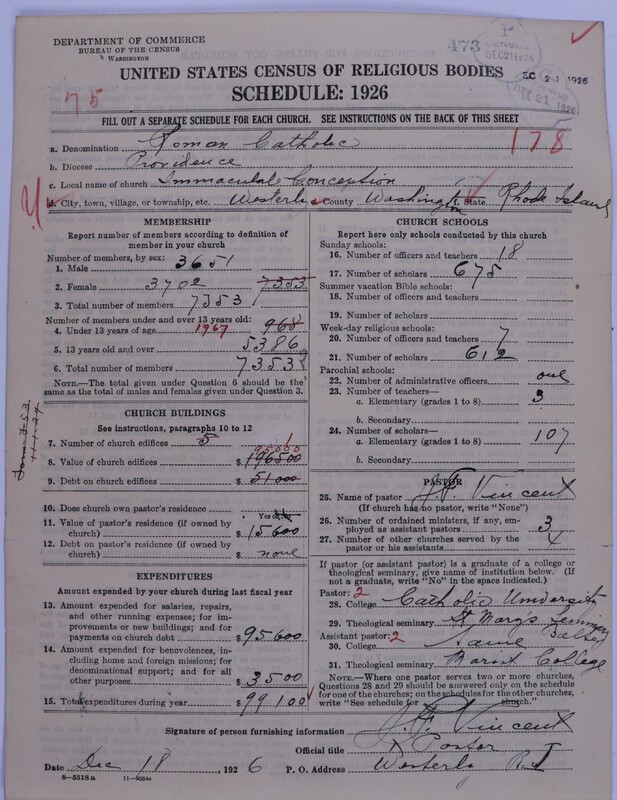 DEPARTMENT OF COMMERCE
BUREAU OF THE CENSUS
WASHINGTON
473
CENSUS
DEC 21 1926
UNITED STATES CENSUS OF RELIGIOUS BODIES
SCHEDULE: 1926
75
FILL OUT A SEPARATE SCHEDULE FOR EACH CHURCH. SEE INSTRUCTIONS ON THE BACK OF THIS SHEET
178
a. Denomination Roman Catholic
b. Diocese Providence
c. Local name of church Immaculate Conception
d. City, town, village, or township, etc. Westerly e. County Washington f. State Rhode Island
MEMBERSHIP
Report number of members according to definition of member in your church
Number of members, by sex:
1. Male 3651
2. Female 3702 7353
3. Total number of members 7353
Number of members under and over 13 years old:
4. Under 13 years of age 1967 968
5. 13 years old and over 5386
6. Total number of members 7353
NOTE.—The total given under Question 6 should be the same as the total of males and females given under Question 3.
CHURCH BUILDINGS
See instructions, paragraphs 10 to 12
7. Number of church edifices 5 1
8. Value of church edifices $
9. Debt on church edifices $ 51000
10. Does church own pastor's residence Yes or No
11. Value of pastor's residence (if owned by church) $ 15600
12. Debt on pastor's residence (if owned by church) $ none
EXPENDITURES
Amount expended by your church during last fiscal year
13. Amount expended for salaries, repairs, and other running expenses; for improvements or new buildings; and for payments on church debt $ 95600
14. Amount expended for benevolences, including home and foreign missions; for denominational support; and for all other purposes $ 3500
15. Total expenditures during year $ 99100
CHURCH SCHOOLS
Report here only schools conducted by this church
Sunday schools:
16. Number of officers and teachers 18
17. Number of scholars 675
Summer vacation Bible schools:
18. Number of officers and teachers
19. Number of scholars
Week-day religious schools:
20. Number of officers and teachers 7
21. Number of scholars 612
Parochial schools:
22. Number of administrative officers one
23. Number of teachers—
a. Elementary (grades 1 to 8) 3
b. Secondary
24. Number of scholars—
a. Elementary (grades 1 to 8) 107
b. Secondary
PASTOR
25. Name of pastor J. F. Vincent
(If church has no pastor, write "None")
26. Number of ordained ministers, if any, employed as assistant pastors 3
27. Number of other churches served by the pastor or his assistants 4
If pastor (or assistant pastor) is a graduate of a college or theological seminary, give name of institution below. (If not a graduate, write "No" in the space indicated.)
Pastor: 2
28. College Catholic University
29. Theological seminary St Mary's Seminary Balto
Assistant pastor: 2
30. College Same
31. Theological seminary Marist College
NOTE.—Where one pastor serves two or more churches, Questions 28 and 29 should be answered only on the schedule for one of the churches; on the schedules for the other churches, write "See schedule for church."
Signature of person furnishing information J. F. Vincent
Official title Pastor
Date Dec 18, 1926 P. O. Address Westerly R I
8—5518a